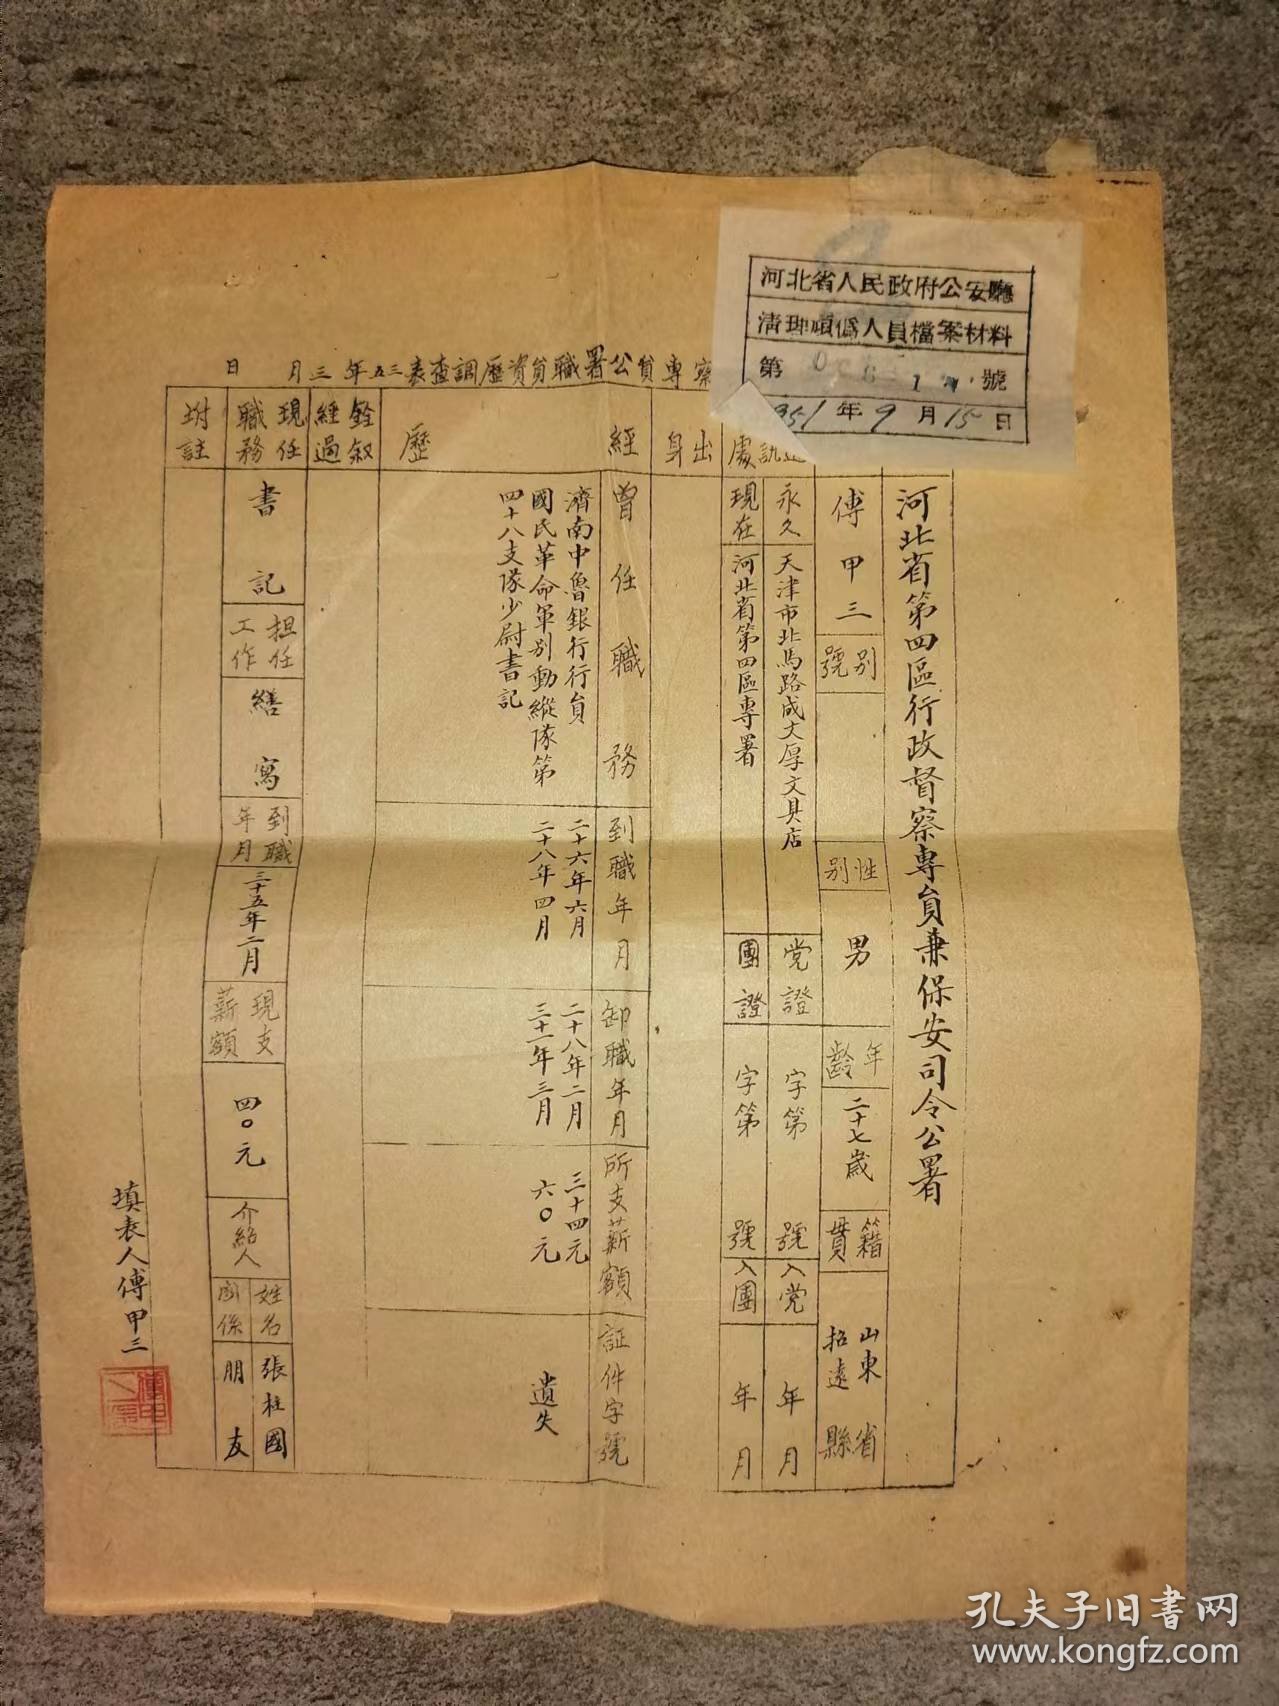 河北省人民政府公安廳
清理頑僞人員檔案材料
第 號
1951年9月15日
察專員公署職員資歷調查表 三五年三月 日
河北省第四區行政督察專員兼保安司令公署
傅甲三
別號
性別
男
年齡
二十七歲
籍貫
山東省
招遠縣
永久
天津市北馬路成文厚文具店
黨證
字第 號
入党 年 月
現在
河北省第四區專署
團證
字第 號
入團 年 月
處
出身
經歷
曾任職務
到職年月
卸職年月
所支薪額
証件字號
濟南中魯銀行行員
二十六年六月
二十八年二月
三十四元
國民革命軍別動縱隊第
四十八支隊少尉書記
二十八年四月
三十一年三月
六〇元
遺失
銓敘
經過
現任
職務
書記
担任
工作
繕寫
到職
年月
三十五年二月
現支
薪額
四〇元
介紹人
姓名
張柱國
關係
朋友
坿註
填表人傅甲三
孔夫子旧書网
www.kongfz.com